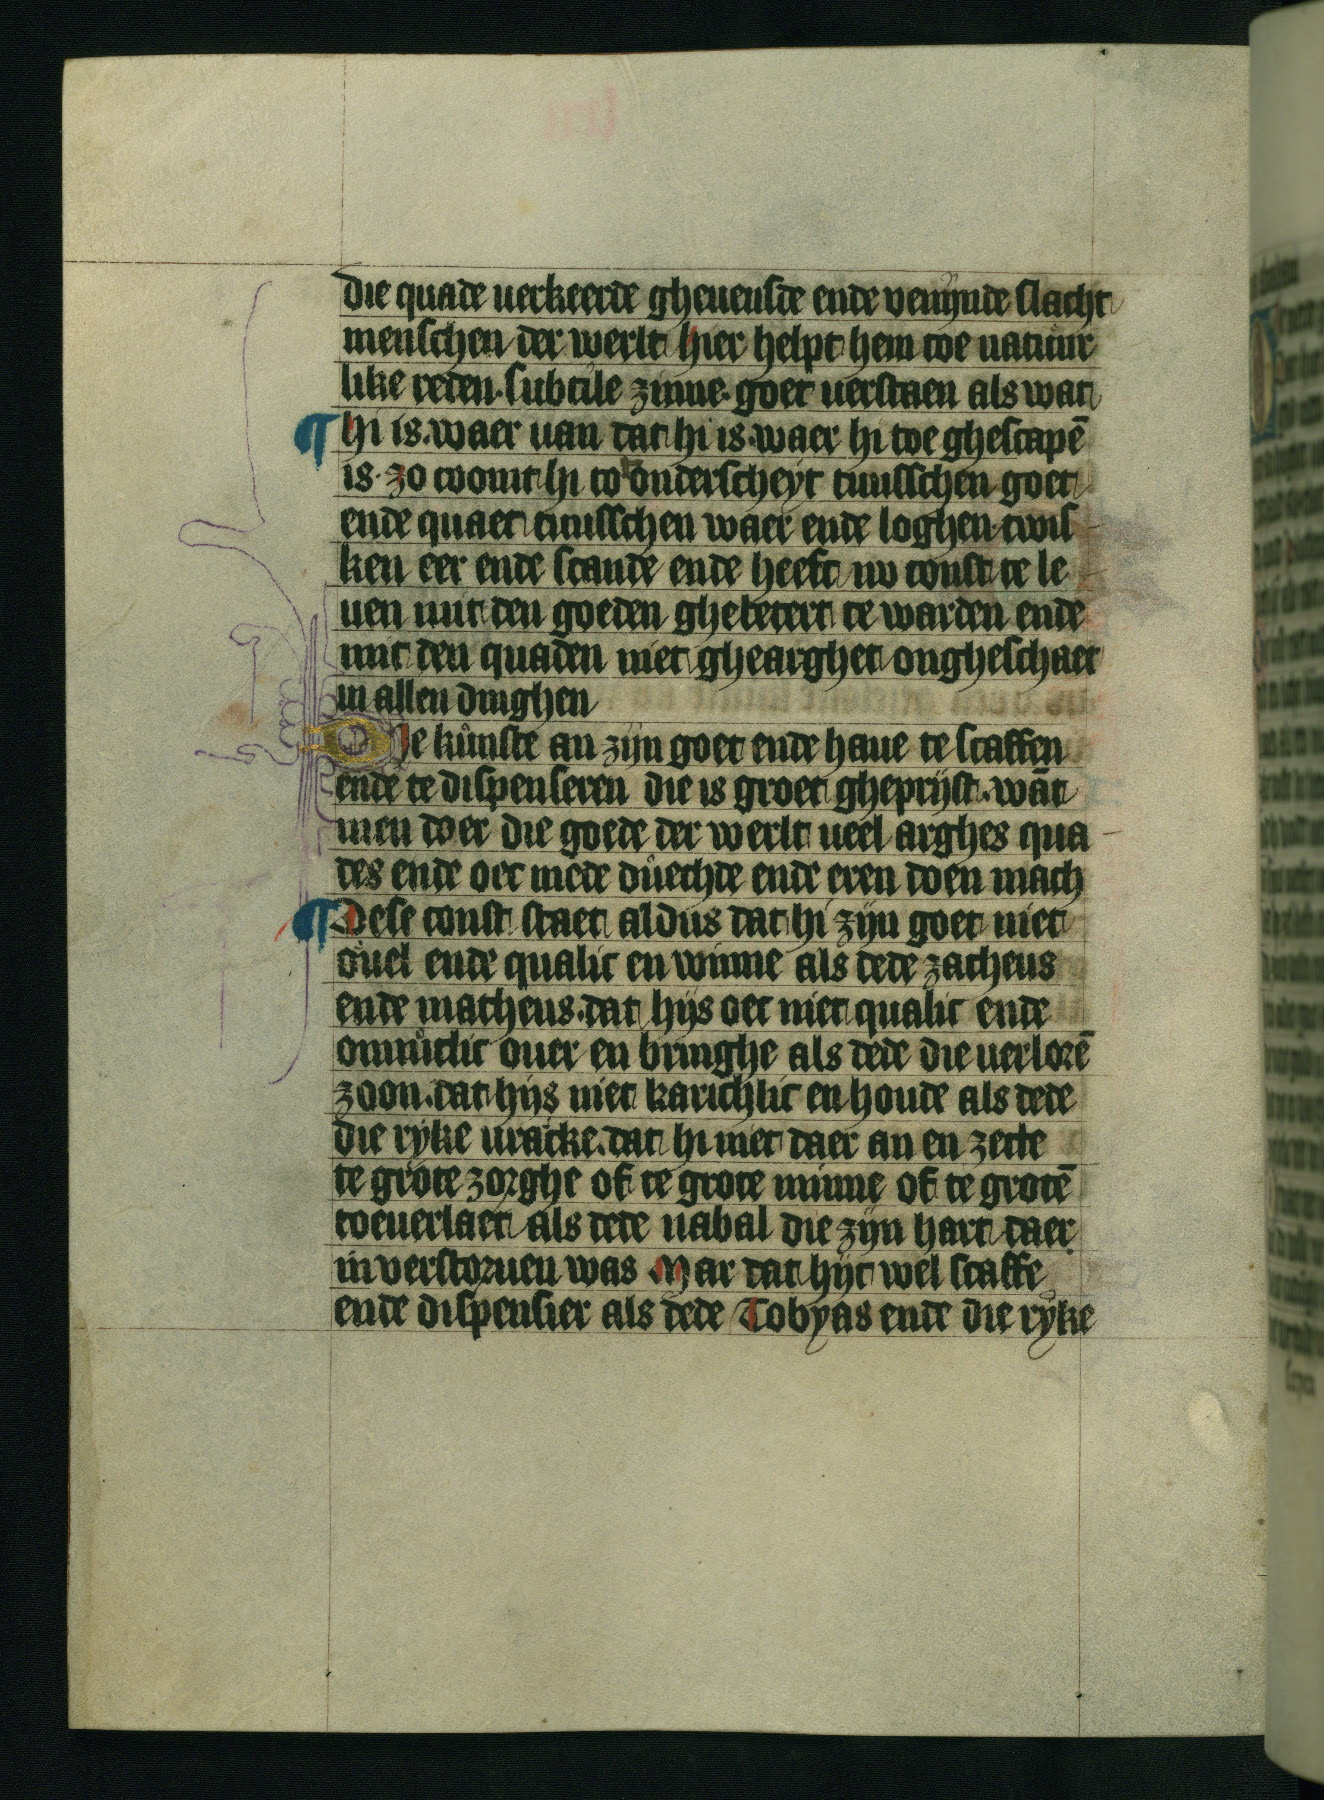 die quade uerkeerde gheueusde ende venijnde slacht
menschen der werlt hier helpt hem toe natuur
like reden. subtile zinne. goet uerstaen als wat
¶ hi is. waer uan dat hi is. waer hi toe ghescapē
is. zo coomt hi to onderscheyt tuusschen goet
ende quaet tuusschen waer ende loghen twis
ken eer ende scande ende heeft nv const te le
uen mit den goeden ghebetert te warden ende
mit den quaden niet ghearghet ongheschaet
in allen dinghen
Die kůnste an zijn goet ende haue te scaffen
ende te dispenseren die is groet gheprijst. wāt
men doer die goede der werlt ueel arghes qua
des ende oec mede důechde ende eren doen mach
¶ Dese const staet aldus dat hi zijn goet niet
ouel ende qualic en winne als dede zacheus
ende matheus. dat hijs oec niet qualic ende
onnůtlic ouer en bringhe als dede die uerlorē
zoon. dat hijs niet karichlic en houde als dede
die ryke uracke. dat hi niet daer an en zette
te grote zorghe of te grote minne of te grotē
toeuerlaet als dede nabal die zijn hart daer
in verstoruen was Mar dat hijt wel scaffe
ende dispensier als dede Tobyas ende die ryke